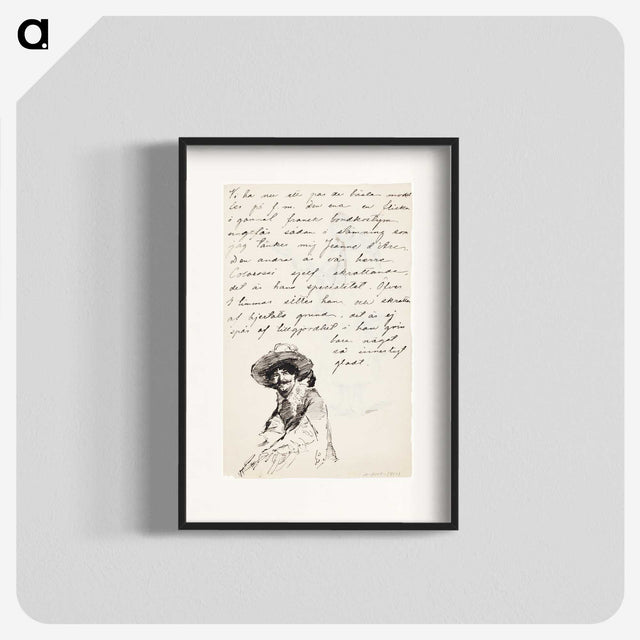 a.
Vi ha nu ett par de bästa model
ler på f.m. Den ena en flicka
i gammal fransk bondkostym
ungefär sådan i stämning som
jag tänker mig Jeanne d'Arc.
Den andra är vår herre
Colarossi sjelf, skrattande,
det är hans specialitet. Öfver
timmar sitter han och skrattar
af hjertats grund, det är ej
spår af tillgjordhet i hans grin
bara något
så innerligt
gladt.